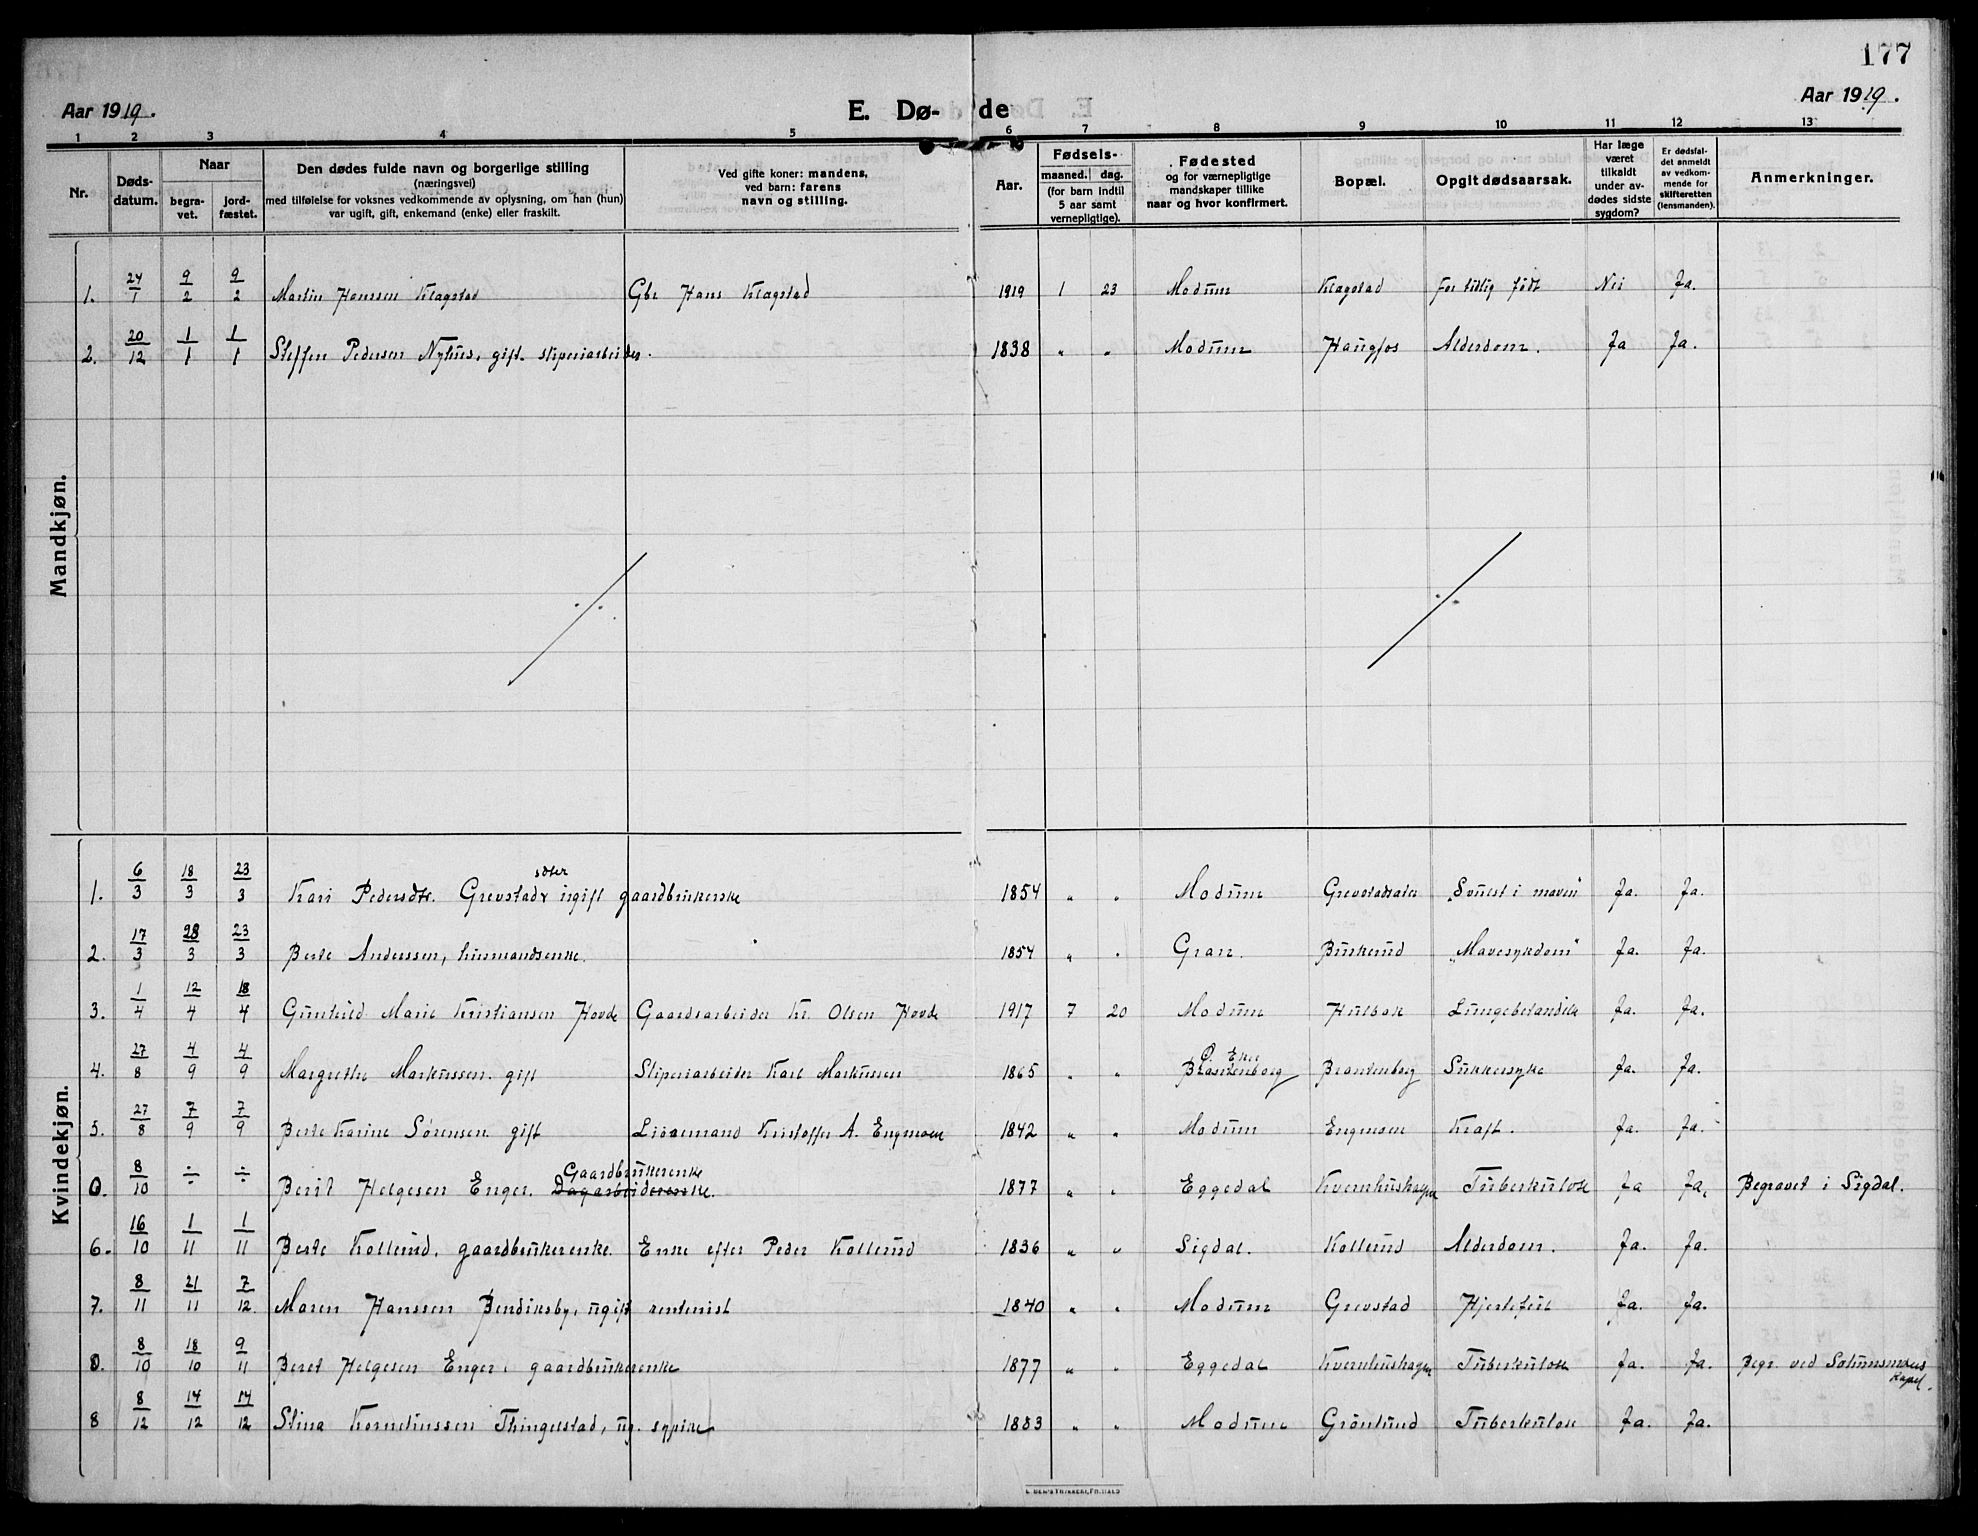 177
Aar 1919.
E. Dø-
de
Aar 1919.
1 2 3 4 5 6 7 8 9 10 11 12 13
Nr.
Døds-
datum.
Naar
begra-
vet.
jord-
fæstet.
Den dødes fulde navn og borgerlige stilling
(næringsvei)
med tilføielse for voksnes vedkommende av oplysning, om han (hun)
var ugift, gift, enkemand (enke) eller fraskilt.
Ved gifte koner: mandens,
ved barn: farens
navn og stilling.
Aar.
Fødsels-
maaned. dag.
(for barn indtil
5 aar samt
vernepligtige).
Fødested
og for værnepligtige
mandskaper tillike
naar og hvor konfirmert.
Bopæl.
Opgit dødsaarsak.
Har læge
været
tilkaldt
under av-
dødes sidste
sygdom?
Er dødsfal-
det anmeldt
av vedkom-
mende for
skifteretten
(lensmanden).
Anmerkninger.
Mandkjøn.
1. 24/1 9/2 9/2 Martin Hanssen Klagstad Gbr Hans Klagstad 1919 1 23 Modum Klagstad for tidlig født Nei Ja.
2. 20/12 1/1 1/1 Steffen Pedersen Nyhus, gift sliperiarbeider. 1838 " " Modum Haugfos Alderdom. Ja Ja.
Kvindekjøn.
sæter
1. 6/3 18/3 23/3 Kari Pedersdtr. Grevstad ugift gaardbrukerske 1854 " " Modum Grevstadsæter „Svulst i maven" Ja. Ja.
2. 17/3 28/3 23/3 Berte Anderssen, husmandsenke. 1854 " " Gran. Bukerud „Mavesykdom" Ja. Ja.
3. 1/4 12/4 18/4 Gunhild Marie Kristiansen Hovde Gaardsarbeider Kr. Olsen Hovde 1917 7 20 Modum Hulbak Lungebetændelse Ja. Ja.
Ø. Eker
4. 27/8 4/9 4/9 Margrethe Markussen. gift Sliperiarbeider Karl Markussen 1865 " " Brandenborg Brandenborg Sukkersyke Ja. Ja.
5. 27/8 7/9 7/9 Berte Karine Sørensen gift Kristoffer A. Engmoen 1842 " " Modum Engmoen Kræft. Ja. Ja.
Gaardbrukerenke
0. 8/10 ÷ ÷ Berit Helgesen Enger. Dagarbeiderenke. 1877 " " Eggedal Kvernhushagen Tuberkulose Ja Ja, Begravet i Sigdal.
6. 16/10 1/11 1/11 Berte Kollerud, gaardbrukerenke. Enke efter Peder Kollerud 1836 " " Sigdal. Kollerud Alderdom. Ja. Ja.
7. 8/11 21/11 7/12. Maren Hanssen Bendiksby, ugift rentenist 1840 " " Modum Grevstad Hjertefeil Ja. Ja.
0. 8/10 18/10 9/11 Beret Helgesen Enger, gaardbrukerenke 1877 " " Eggedal Kvernhushagen Tuberkulose Ja. Ja. Begr. ved Solumsmoens
Kapel.
8 8/12 14/12 14/12 Stina Korneliussen Thingelstad, ug. sypike 1883 " " Modum Grønlund Tuberkulose Ja. Ja.